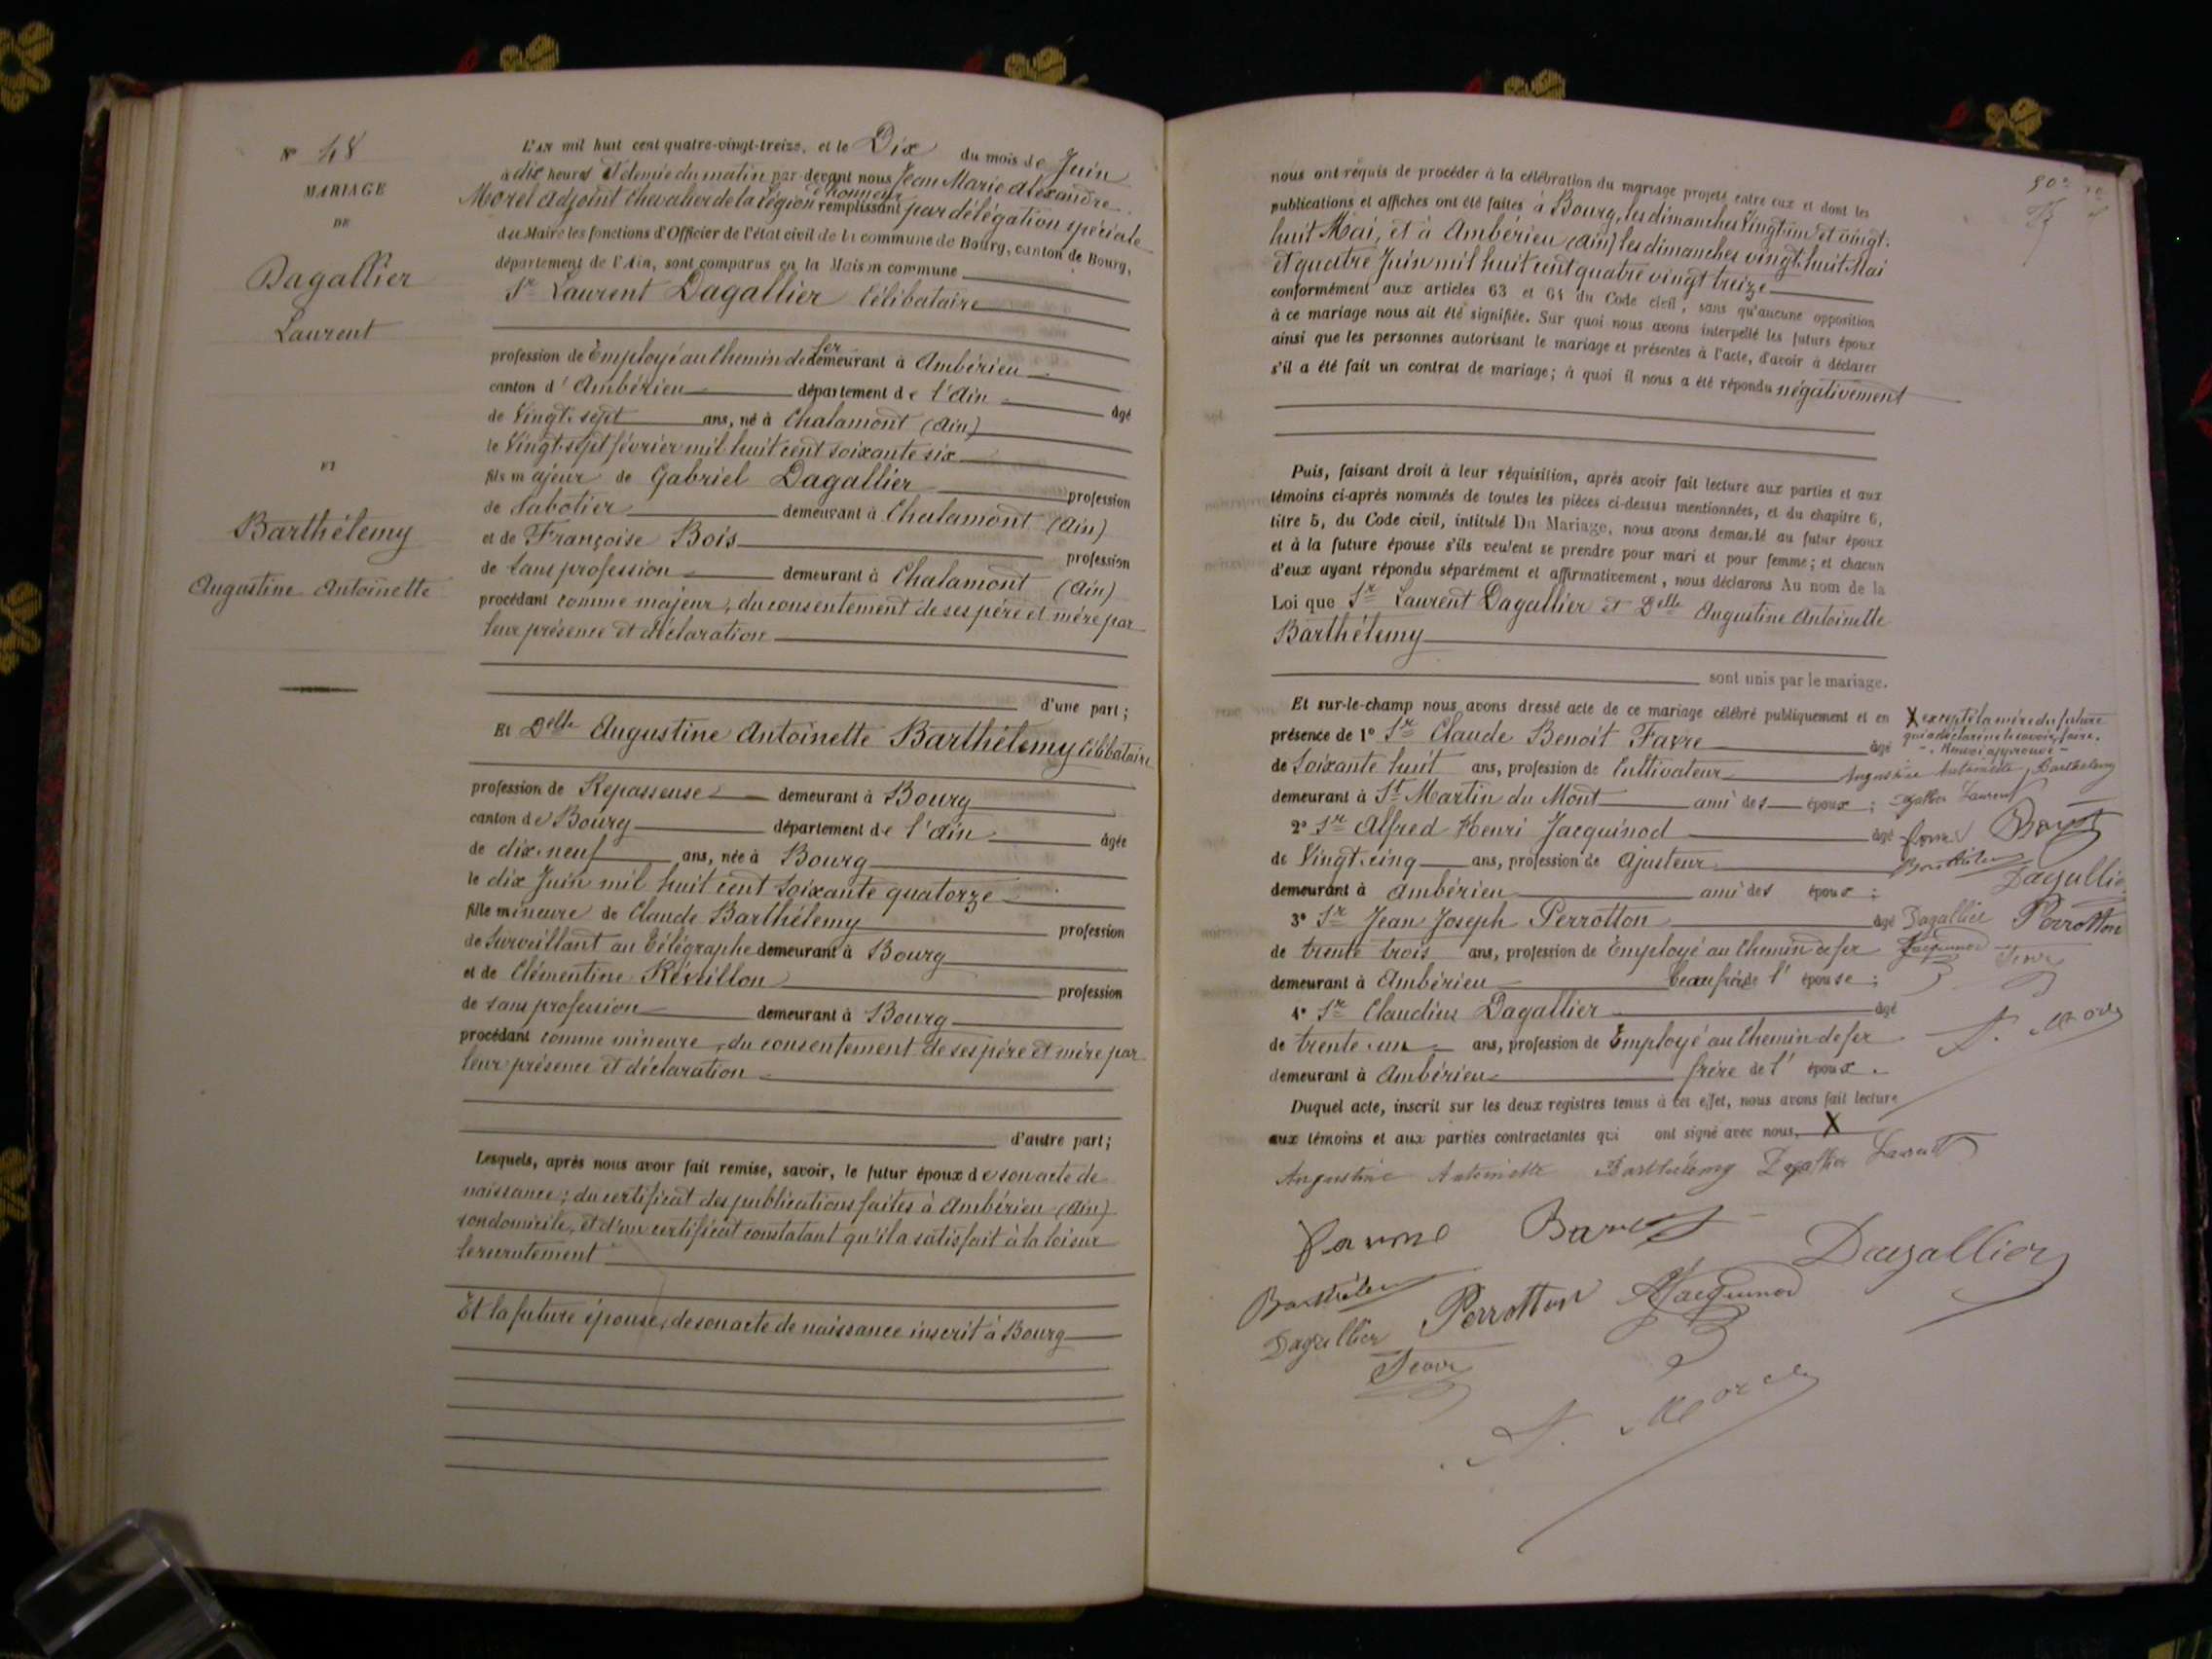 N° 48
MARIAGE
DE
Dagallier
Laurent
ET
Barthélemy
Augustine Antoinette
L'AN mil huit cent quatre-vingt-treize, et le Dix du mois de Juin
à dix heures et demie du matin par devant nous Jean Marie Alexandre
Morel adjoint Chevalier de la Légion d'honneur remplissant par délégation spéciale
du Maire les fonctions d'Officier de l'état civil de la commune de Bourg, canton de Bourg,
département de l'Ain, sont comparus en la Maison commune
Sr Laurent Dagallier Célibataire
profession de Employé au Chemin de fer demeurant à Ambérieu
canton d'Ambérieu département de l'Ain âgé
de Vingt-sept ans, né à Chalamont (Ain)
le Vingt-sept février mil huit cent soixante six
fils majeur de Gabriel Dagallier profession
de Sabotier demeurant à Chalamont (Ain)
et de Françoise Bois profession
de Sans profession demeurant à Chalamont (Ain)
procédant comme majeur, du consentement de ses père et mère par
leur présence et déclaration
d'une part;
Et Delle Augustine Antoinette Barthélemy Célibataire
profession de Repasseuse demeurant à Bourg
canton de Bourg département de l'Ain âgée
de dix-neuf ans, née à Bourg
le dix Juin mil huit cent soixante quatorze
fille mineure de Claude Barthélemy profession
de Surveillant au Télégraphe demeurant à Bourg
et de Clémentine Réveillon profession
de sans profession demeurant à Bourg
procédant comme mineure, du consentement de ses père et mère par
leur présence et déclaration
d'autre part;
Lesquels, après nous avoir fait remise, savoir, le futur époux de son acte de
naissance; du certificat des publications faites à Ambérieu (Ain)
son domicile, et d'un certificat constatant qu'il a satisfait à la loi sur
le recrutement
Et la future épouse, de son acte de naissance inscrit à Bourg
nous ont requis de procéder à la célébration du mariage projeté entre eux et dont les
publications et affiches ont été faites à Bourg, les dimanches Vingt un et vingt-
huit Mai, et à Ambérieu (Ain) les dimanches vingt-huit Mai
et quatre Juin mil huit cent quatre vingt treize
conformément aux articles 63 et 64 du Code civil, sans qu'aucune opposition
à ce mariage nous ait été signifiée. Sur quoi nous avons interpellé les futurs époux
ainsi que les personnes autorisant le mariage et présentes à l'acte, d'avoir à déclarer
s'il a été fait un contrat de mariage; à quoi il nous a été répondu négativement
Puis, faisant droit à leur réquisition, après avoir fait lecture aux parties et aux
témoins ci-après nommés de toutes les pièces ci-dessus mentionnées, et du chapitre 6,
titre 5, du Code civil, intitulé Du Mariage, nous avons demandé au futur époux
et à la future épouse s'ils veulent se prendre pour mari et pour femme; et chacun
d'eux ayant répondu séparément et affirmativement, nous déclarons Au nom de la
Loi que Sr Laurent Dagallier et Delle Augustine Antoinette
Barthélemy
sont unis par le mariage.
Et sur-le-champ nous avons dressé acte de ce mariage célébré publiquement et en
présence de 1° Sr Claude Benoit Favre âgé
de Soixante huit ans, profession de Cultivateur
demeurant à St Martin du Mont ami des époux;
2° Sr Alfred Henri Jacquinod âgé
de Vingt-cinq ans, profession de Ajusteur
demeurant à Ambérieu ami des époux;
3° Sr Jean Joseph Perrotton âgé
de trente trois ans, profession de Employé au Chemin de fer
demeurant à Ambérieu beau frère de l'épouse;
4° Sr Claudius Dagallier âgé
de trente-un ans, profession de Employé au Chemin de fer
demeurant à Ambérieu frère de l'époux.
Duquel acte, inscrit sur les deux registres tenus à cet effet, nous avons fait lecture
aux témoins et aux parties contractantes qui ont signé avec nous, X
X excepté la mère du future
qui a déclaré ne le savoir faire.
Renvoi approuvé
Augustine Antoinette Barthélemy
Dagallier Laurent
Dagallier
Dagallier Perrotton
Jacquinod
A. Morel
Augustine Antoinette Barthélemy Dagallier Laurent
Dagallier
Barthélemy Perrotton A Jacquinod
Dagallier
A. Morel